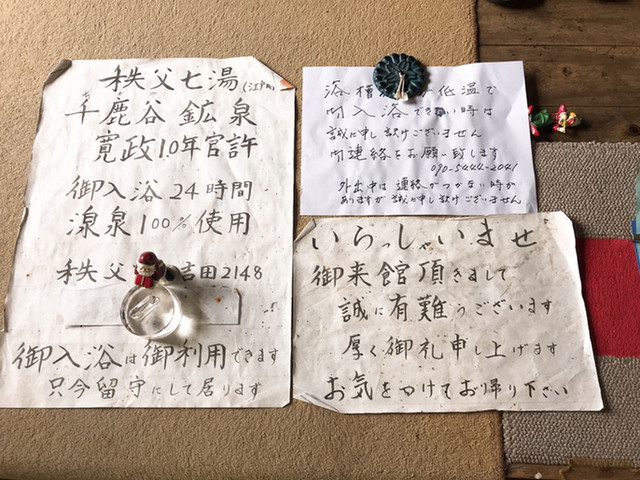 秩父七湯(江戸時
千鹿谷鉱泉
寛政10年官許
御入浴24時間
源泉100%使用
秩父 吉田2148
御入浴は御利用できます
只今留守にして居ります
浴槽 低温で
御入浴できない時は
誠に申し訳けございません
御連絡をお願い致します
090-5444-2041
外出中は連絡がつかない時が
ありますが誠に申し訳けございません
いらっしゃいませ
御来館頂きまして
誠に有難うございます
厚く御礼申し上げます
お気をつけてお帰り下さい